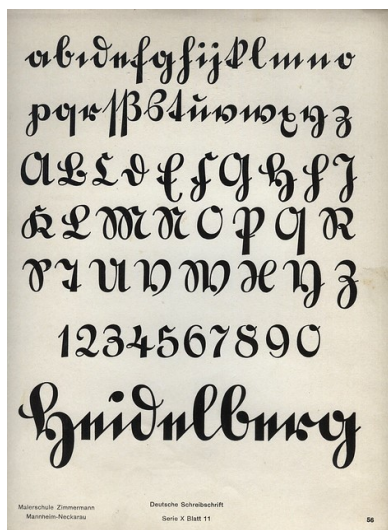 abcdefghijklmno
pqrſßstuvwxyz
ABCDEFGHIJ
KLMNOPQR
STUVWXYZ
1234567890
Heidelberg
Malerschule Zimmermann
Mannheim-Neckarau
Deutsche Schreibschrift
Serie X Blatt 11
56